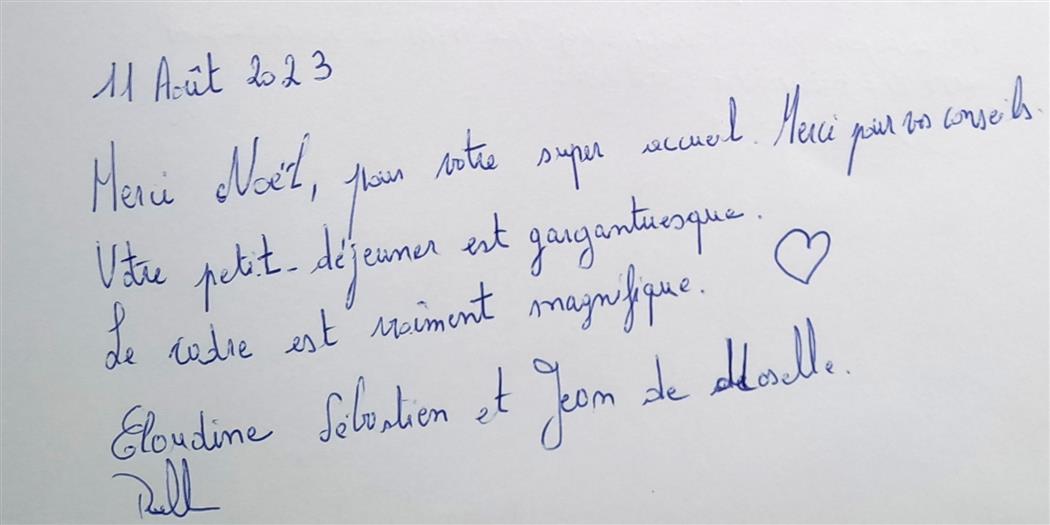 11 Août 2023
Merci Noël, pour votre super accueil. Merci pour vos conseils.
Votre petit-déjeuner est gargantuesque.
Le cadre est vraiment magnifique.
Claudine Sébastien et Jean de Moselle.